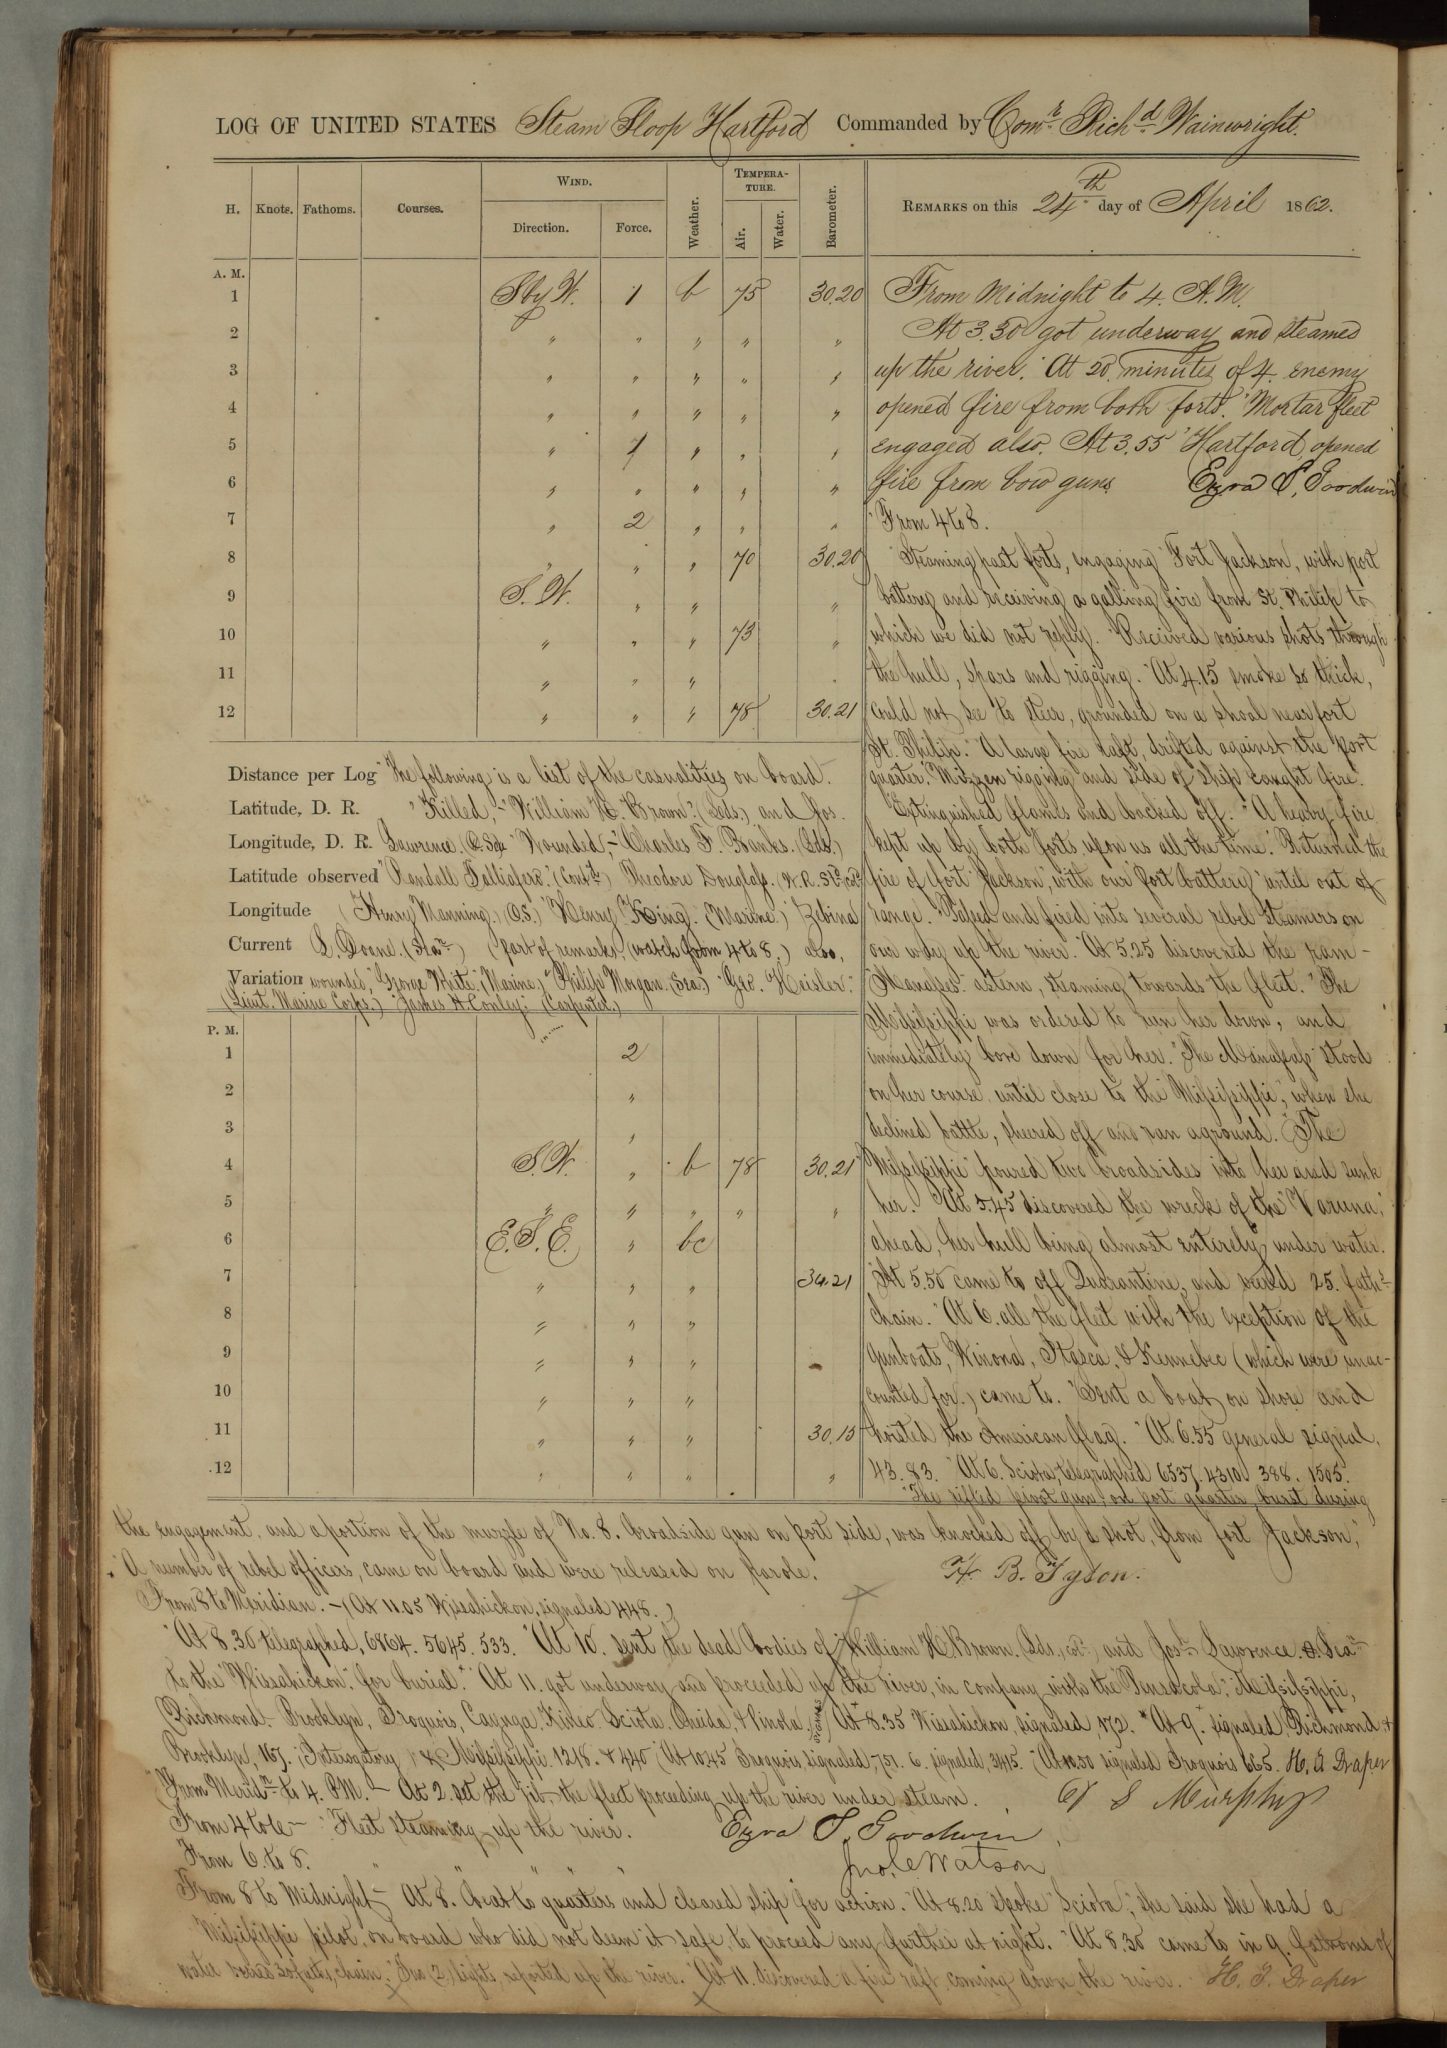 LOG OF UNITED STATES Steam Sloop Hartford Commanded by Comr. Richd. Wainwright.
H. Knots. Fathoms. Courses. WIND. Direction. Force. Weather. TEMPERATURE. Air. Water. Barometer. REMARKS on this 24th day of April 1862.
A. M.
1 S by W. 1 b 75 30.20
2 " " " " "
3 " " " " "
4 " " " " "
5 " 1 " " "
6 " " " " "
7 " 2 " " "
8 " " " 70 30.20
9 S. W. " " "
10 " " " 73 "
11 " " "
12 " " " 78 30.21
Distance per Log "The following is a list of the casualities on board.
Latitude, D. R. "Killed," - "William H. Brown." (Lds.) and Jos.
Longitude, D. R. Lawrence. "Wounded," - "Charles F. Banks. (Lds.)
Latitude observed "Randall Talliafero." (Contd.) Theodore Douglass.
Longitude (Henry Manning.) (O.S.) "Henry King. (Marine.) Zebina
Current S. Doane. (Sea.) (part of remarks, watch from 4 to 8.) also,
Variation wounded, "George White. (Marine.)" Philip Morgan. (Sea.) Geo. Heisler."
(Lieut. Marine Corps.) James H. Conley. (Carpenter.)
P. M.
1 2
2 "
3 "
4 S W. " b 78 30.21
5 " " " " "
6 E. S. E. " bc
7 " " " 30.21
8 " " "
9 " " "
10 " " "
11 " " " 30.15
12 " " " "
From Midnight to 4. A. M.
At 3.30 got underway and steamed
up the river. At 20. minutes of 4. enemy
opened fire from both forts. Mortar fleet
engaged also. At 3.55 Hartford opened
fire from bow guns. Ezra S. Goodwin
From 4 to 8.
Steaming past forts, engaging Fort Jackson, with port
battery and receiving a galling fire from St. Philip to
which we did not reply. Received various shots through
the hull, spars and rigging. At 4.15 smoke so thick,
could not see to steer, grounded on a shoal near fort
St. Philip. A large fire raft, drifted against the port
quarter. Mizzen rigging and side of ship caught fire.
Extinguished flames and backed off. A heavy fire
kept up by both forts upon us all the time. Returned the
fire of fort Jackson, with our port battery until out of
range. Passed and fired into several rebel steamers on
our way up the river. At 5.25 discovered the ram-
Manassas. astern, steaming towards the fleet. The
Mississippi was ordered to run her down, and
immediately bore down for her. The Manassas stood
on her course until close to the "Mississippi", when she
declined battle, sheered off and ran aground. The
"Mississippi" poured two broadsides into her and sunk
her. At 5.45 discovered the wreck of the "Varuna,"
ahead, her hull being almost entirely under water.
At 5.50 came to off Quarantine, and veered 25. faths.
chain. At 6. all the fleet with the exception of the
gunboats, Winona, Itasca, & Kennebec (which were unac-
counted for.) came to. Sent a boat on shore and
hoisted the American flag. At 6.55 general signal,
43. 83. At 6. Sciota, telegraphed 6537. 4310. 388. 1505.
"The rifled pivot gun, on port quarter, burst during
the engagement, and a portion of the muzzle of No. 8. broadside gun on port side, was knocked off by a shot, from fort Jackson,"
A number of rebel officers, came on board and were released on parole. H. B. Tyson.
From 8 to Meridian. - (At 11.05 Wissahickon, signaled 448.)
At 8.30 telegraphed, 6864. 5645. 533. At 10. sent the dead bodies of William H. Brown. and Jos. Lawrence.
to the "Wissahickon," for burial. At 11. got underway and proceeded up the river, in company with the "Pensacola," Mississippi,
Richmond. Brooklyn, Iroquois, Cayuga, Kineo. Sciota. Oneida, & Pinola. At 8.35 Wissahickon, signaled, 172. At 9. signaled, Richmond &
Brooklyn, 167. Interogatory & Mississippi 1218. & 440 At 10.45 Iroquois signaled, 751. 6. signaled, 3415. At 10.50 signaled Iroquois 665. H. A. Draper
From Merid. to 4. P.M. - At 2. set the jib - the fleet proceeding up the river under steam. Murphy
From 4 to 6 - Fleet steaming up the river. Ezra S. Goodwin
From 6. to 8. " " " " " Watson
From 8 to Midnight - At 8. beat to quarters and cleared ship for action. At 8.20 spoke "Sciota," she said she had a
Mississippi pilot, on board who did not deem it safe to proceed any further at night. At 8.30 came to in 9. fathoms of
water veered 30 faths. chain. lights reported up the river. At 11. discovered a fire raft, coming down the river. Draper